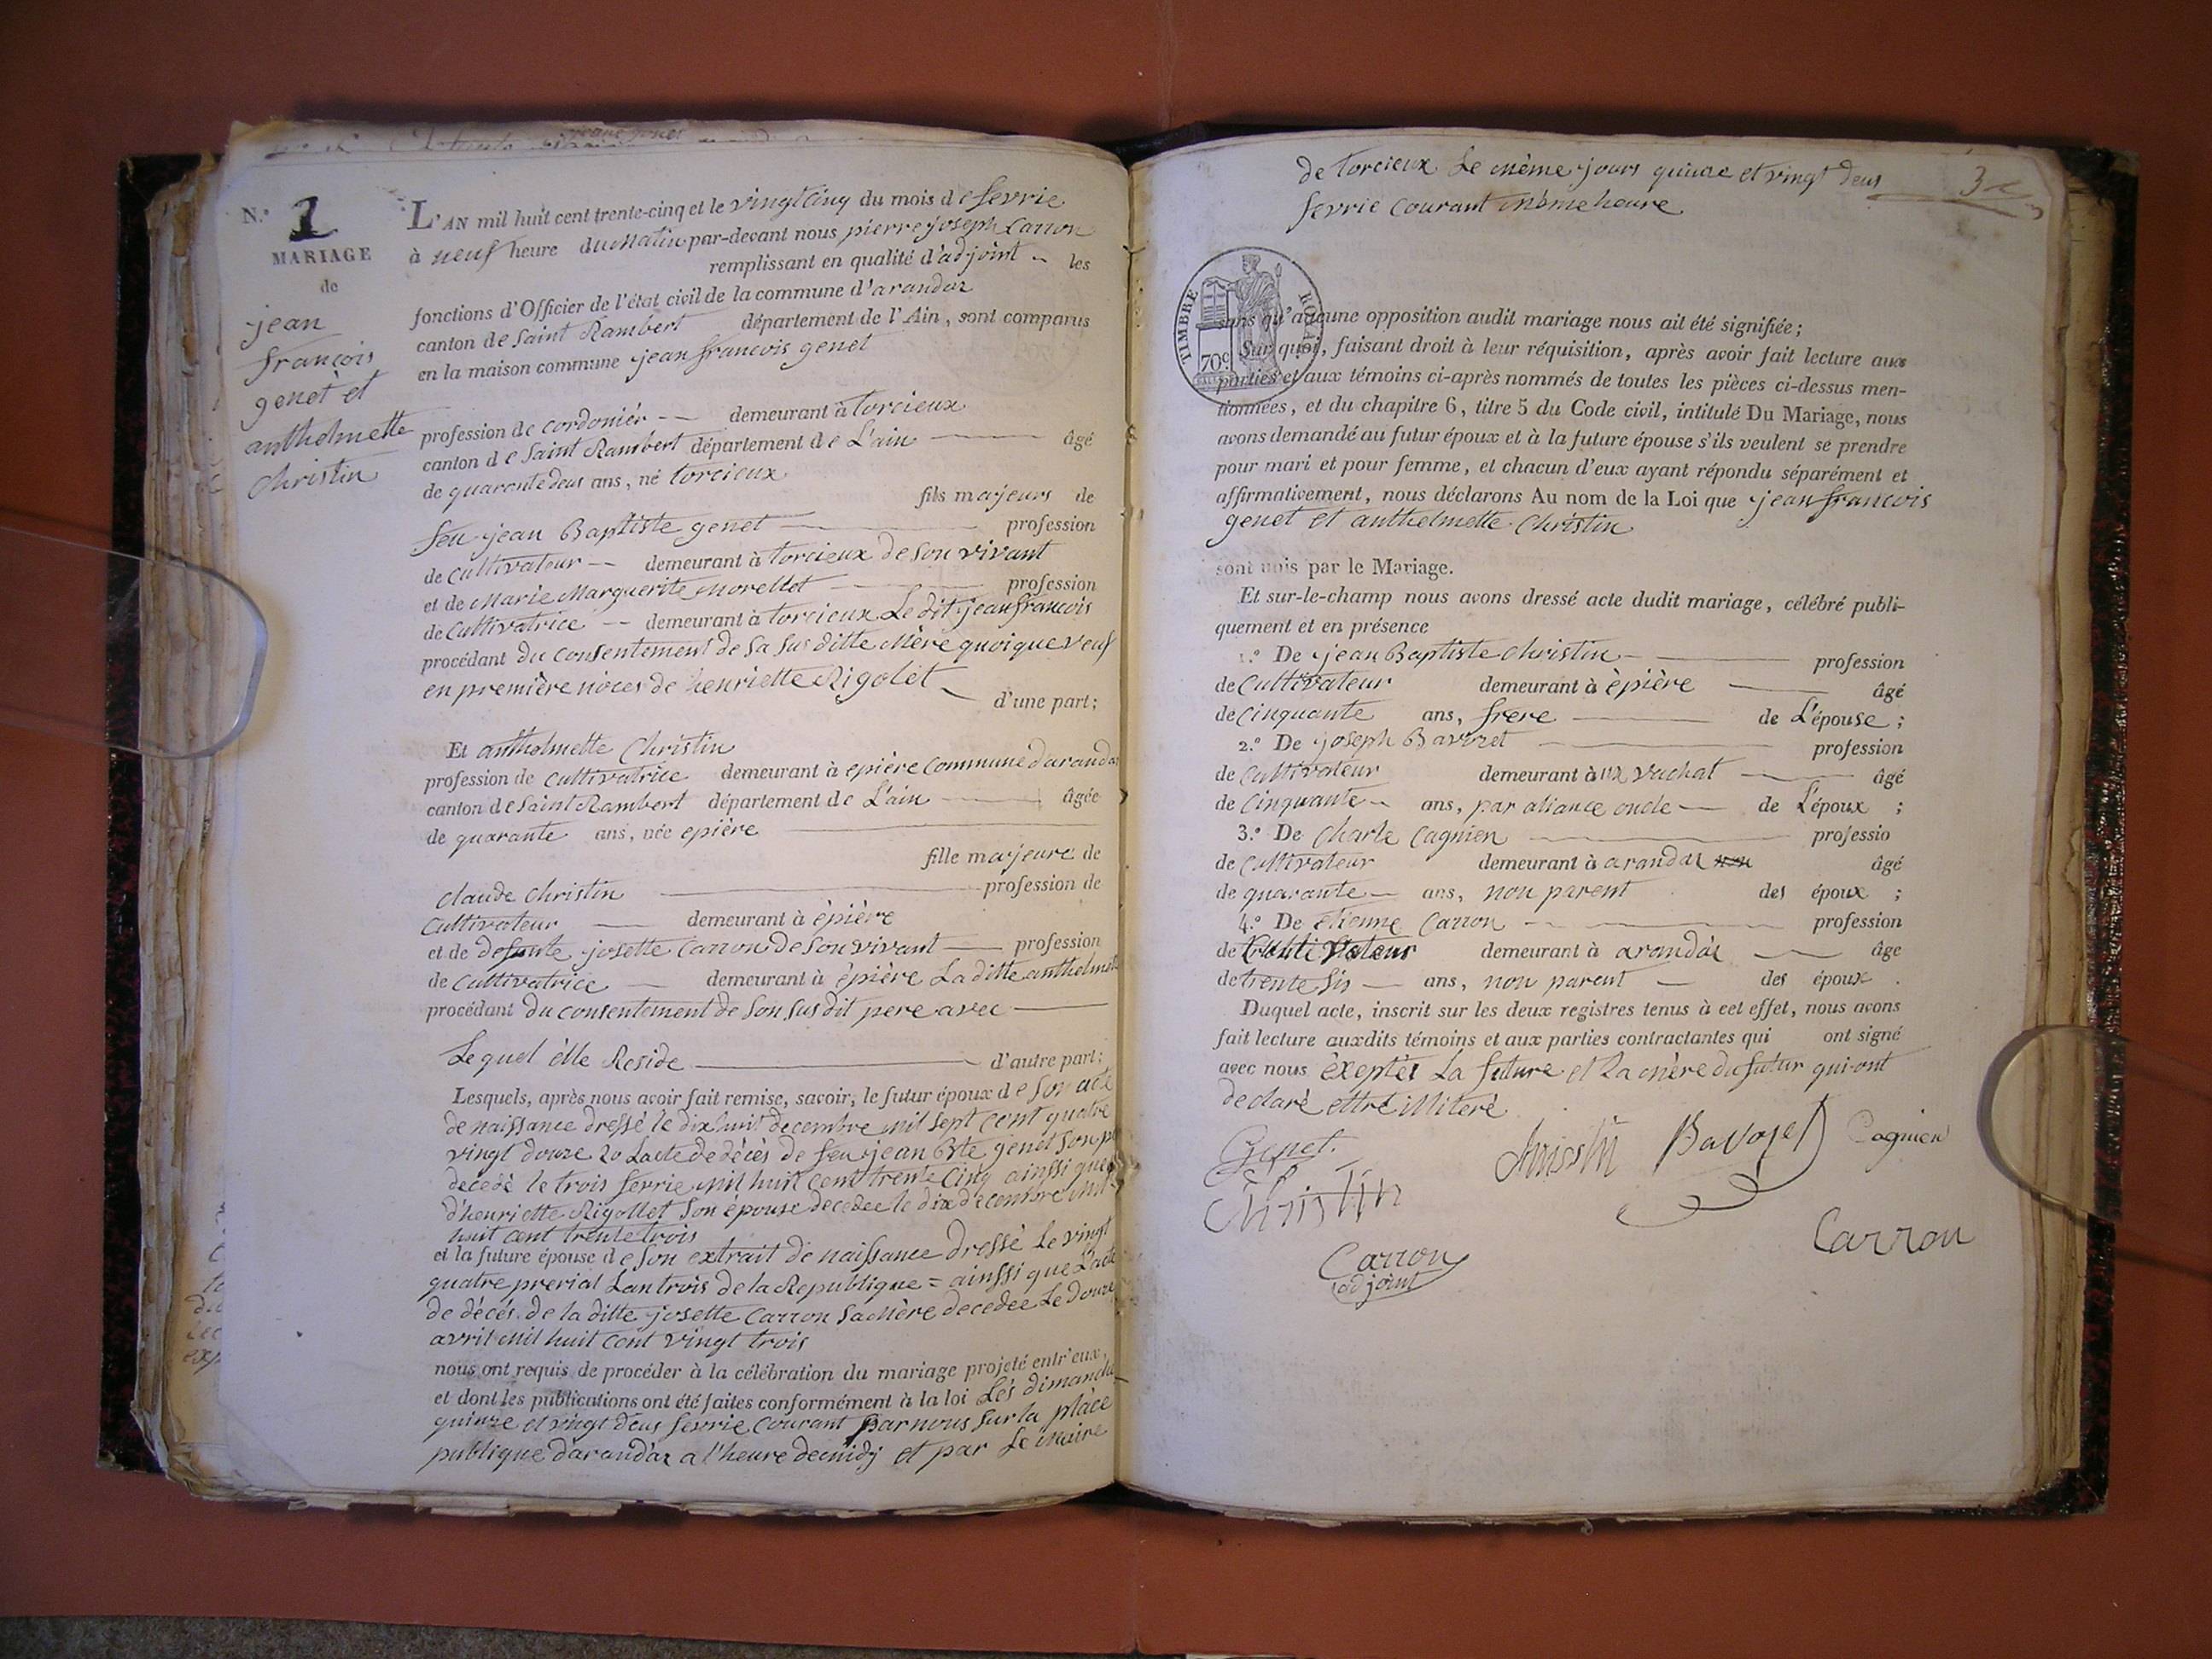 N.° 1
MARIAGE
de
jean
francois
genet et
anthelmette
Christin
L'AN mil huit cent trente-cinq et le vingt cinq du mois de fevrie
à neuf heure du matin par-devant nous pierre joseph Carron
remplissant en qualité d'adjoint les
fonctions d'Officier de l'état civil de la commune d'arandaz
canton de Saint Rambert département de l'Ain, sont comparus
en la maison commune jean francois genet
profession de cordoniér demeurant à torcieux
canton de Saint Rambert département de L'ain âgé
de quarente deus ans, né torcieux
fils majeurs de
feu jean Baptiste genet profession
de Cultivateur demeurant à torcieux de son vivant
et de Marie Marguerite morellet profession
de Cultivatrice demeurant à torcieux Le dit jean francois
procédant du consentement de sa sus ditte Mère quoique veuf
en première noces de henriette Rigolet
d'une part;
Et anthelmette Christin
profession de cultivatrice demeurant à épière Commune d'arandas
canton de Saint Rambert département de L'ain âgée
de quarante ans, née épière
fille majeure de
claude Christin profession de
Cultivateur demeurant à èpière
et de defunte josette Carron de Son vivant profession
de Cultivatrice demeurant à èpière La ditte anthelmette
procédant du consentement de Son susdit pere avec
Le quel élle Reside d'autre part;
Lesquels, après nous avoir fait remise, savoir, le futur époux de son acte
de naissance dressé le dix huit decembre mil sept cent quatre
vingt douze 20 Lacte de décès de feu jean Bte genet son
decedé le trois fevrie mil huit cent trente Cinq ainssi que
d'henriette Rigollet Son épouse decedee le dix decembre mil
huit cent trente trois
et la future épouse de son extrait de naissance Dressé Le vingt
quatre prerial Lan trois de la Republique = ainssi que L'acte
de décés de la ditte josette Carron Sa Mère decedee Le Douze
avril mil huit cent vingt trois
nous ont requis de procéder à la célébration du mariage projeté entr'eux,
et dont les publications ont été faites conformément à la loi Lés dimanche
quinze et vingt deus fevrie Courant par nous Sur la place
publique d'arandaz a l'heure de midj et par Le maire
de torcieux Le mème jours quinze et vingt deus
fevrie courant mème heure
3
TIMBRE ROYAL
70 c
sans qu'aucune opposition audit mariage nous ait été signifiée;
Sur quoi, faisant droit à leur réquisition, après avoir fait lecture aux
parties et aux témoins ci-après nommés de toutes les pièces ci-dessus men-
tionnées, et du chapitre 6, titre 5 du Code civil, intitulé Du Mariage, nous
avons demandé au futur époux et à la future épouse s'ils veulent se prendre
pour mari et pour femme, et chacun d'eux ayant répondu séparément et
affirmativement, nous déclarons Au nom de la Loi que jean francois
genet et anthelmette Christin
sont unis par le Mariage.
Et sur-le-champ nous avons dressé acte dudit mariage, célébré publi-
quement et en présence
1.° De jean Baptiste Christin profession
de Cultivateur demeurant à èpière âgé
de Cinquante ans, frere de L'épouse;
2.° De joseph Bavozet profession
de Cultivateur demeurant à vachat âgé
de Cinquante ans, par aliance oncle de L'époux;
3.° De Charle Cagnien professio
de Cultivateur demeurant à arandaz âgé
de quarante ans, non parent des époux;
4.° De etienne Carron profession
de demeurant à arandaz âge
de trente sis ans, non parent des époux.
Duquel acte, inscrit sur les deux registres tenus à cet effet, nous avons
fait lecture auxdits témoins et aux parties contractantes qui ont signé
avec nous èxeptés La future et La mère du futur qui ont
declaré ettre illiteré
Genet Christin Bavozet Cagnien
Christin
Carron
Carron
adjoint